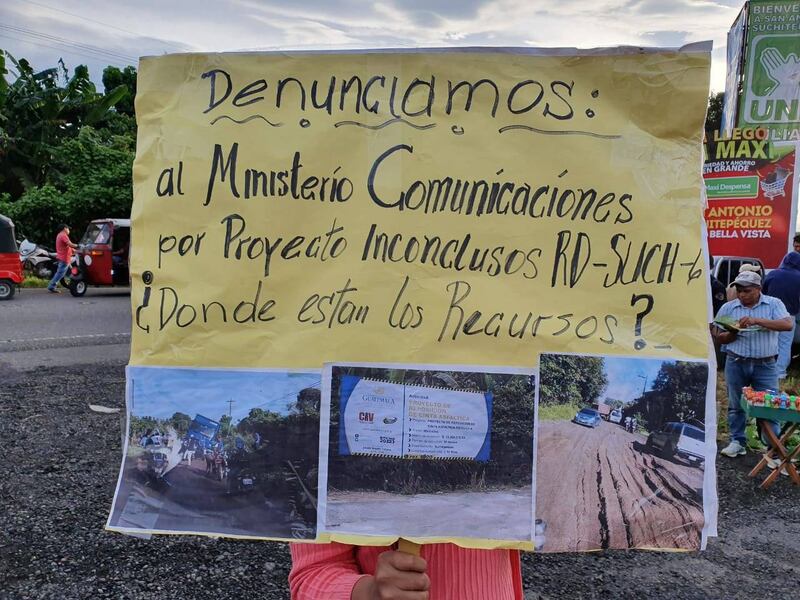 Denunciamos:
al Ministerio Comunicaciones
por Proyecto Inconclusos RD-SUCH-6
¿Donde estan los Recursos?
GUATEMALA
CAV
PROYECTO DE
REPOSICIÓN
DE CINTA
ASFÁLTICA
BIENVE
A SAN A
SUCHITE
UN
LLEGÓ
MAXI
Y AHORRO
EN GRANDE
Maxi Despensa
ANTONIO
BELLA VISTA